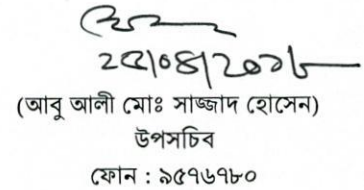 ২৫/০৪/২০১৮
(আবু আলী মোঃ সাজ্জাদ হোসেন)
উপসচিব
ফোন : ৯৫৭৬৭৮০